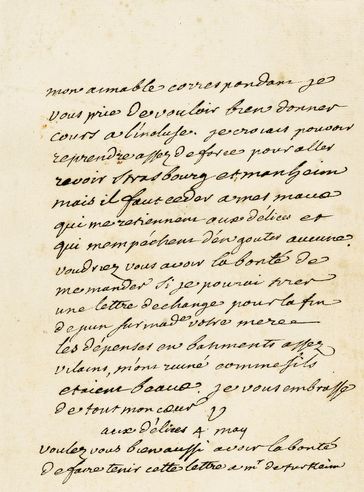 mon aimable correspondant je
vous prie de vouloir bien donner
cours a lincluse. je croiais pouvoir
reprendre assez de force pour aller
revoir strasbourg et manheim
mais il faut ceder a mes maux
qui me retiennent aux délices et
qui mempéchent den gouter aucune.
voudriez vous avoir la bonté de
me mander si je pourai tirer
une lettre dechange pour la fin
de juin sur made votre mere
les dépenses en batiments assez
vilains, m'ont ruiné comme sils
etaient beaux. je vous embrasse
de tout mon coeur V
aux délices 4 may
voulez vous bien aussi avoir la bonté
de faire tenir cette lettre a mr de turkeim